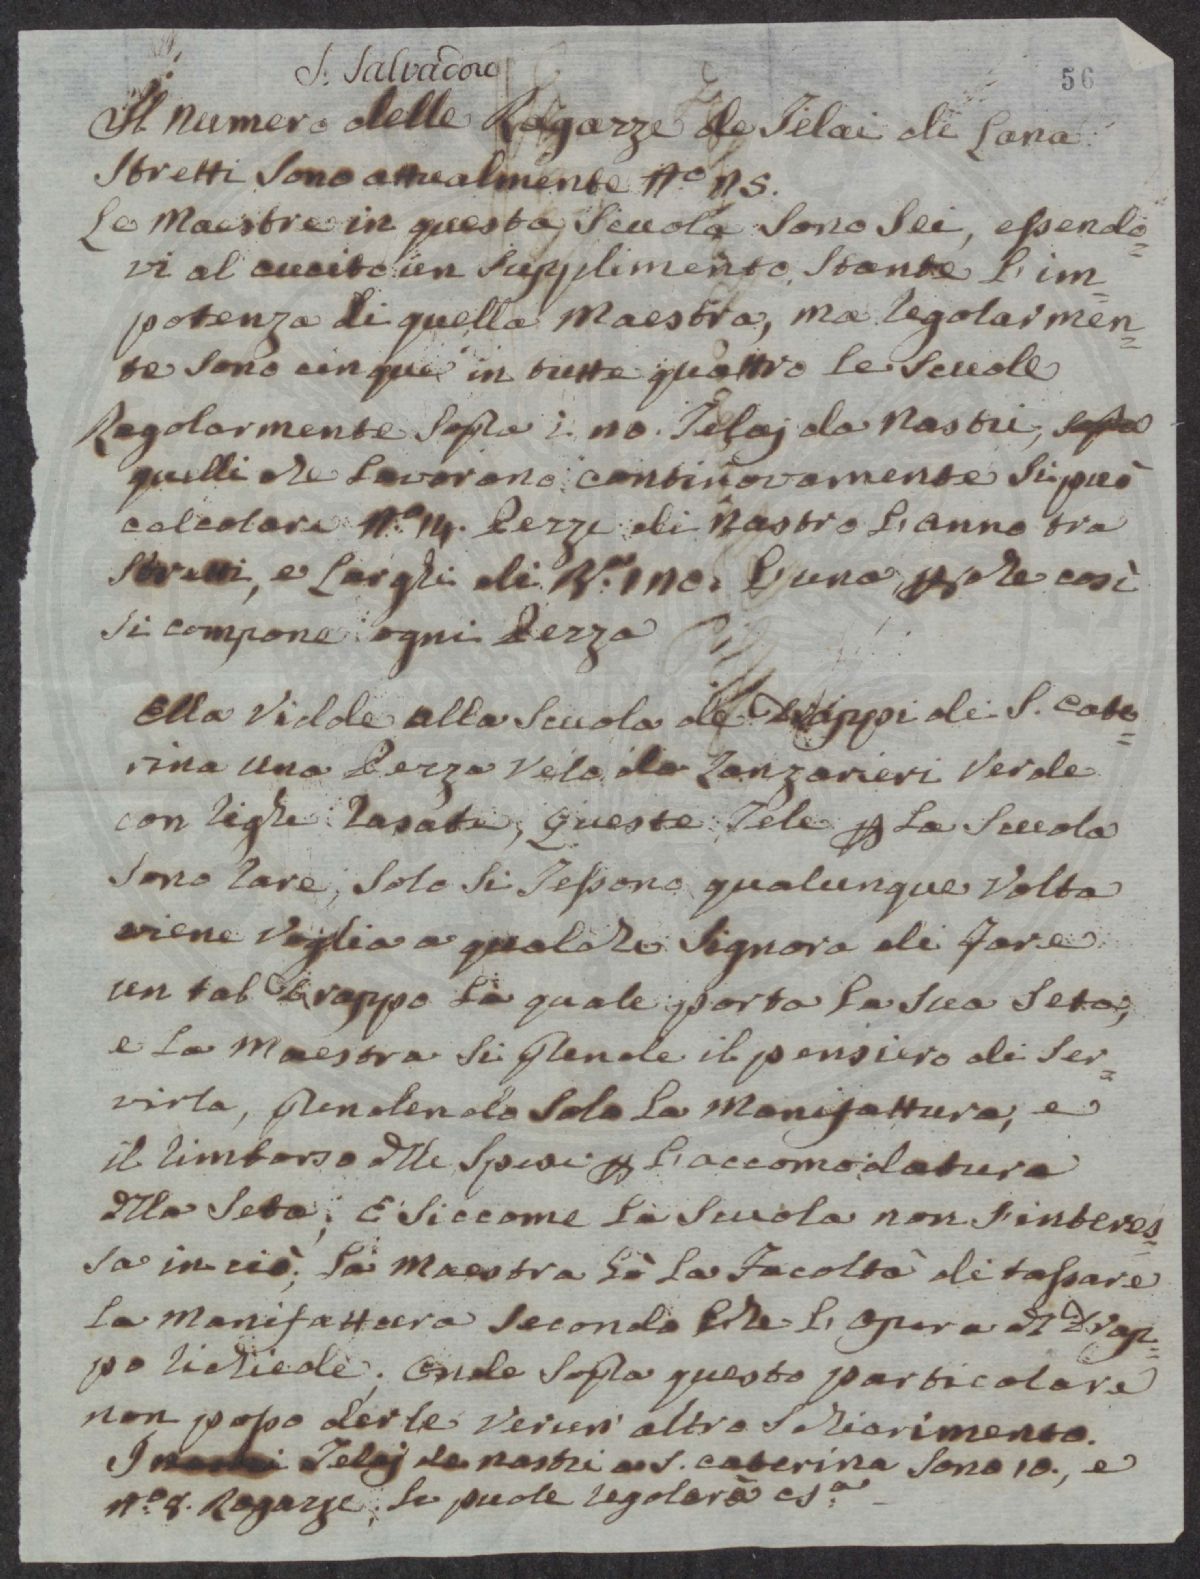 S. Salvadore
56
Il numero delle Ragazze de Telai di Lana
Stretti sono attualmente N.o 15.
Le Maestre in questa Scuola sono sei, essendo=
vi al cucito un supplimento stante l'im=
potenza di quella Maestra, ma regolarmen=
te sono cinque in tutte quattro le Scuole
Regolarmente sopra i no. Telaj da Nastri,
quelli che Lavorano continovamente si può
calcolare N.o 14. Pezze di Nastro l'anno tra
Stretti, e Larghi di 110. l'una che così
si compone ogni Pezza
Ella vidde alla Scuola de Drappi di S. Cate=
rina una Pezza Velo da Zanzarieri verde
con righe rasate, Queste Tele p La Scuola
sono rare, solo si Tessono qualunque volta
viene voglia a qualche Signora di fare
un tal Drappo la quale porta la sua Seta,
e La Maestra si prende il pensiero di ser=
virla, prendendo solo La Manifattura, e
il rimborso dlle spese p l'accomodatura
dlla Seta; E siccome la Scuola non s'interes=
sa in ciò, la Maestra hà La Facoltà di tassare
La Manifattura secondo che l'opera dl Drap=
po richiede; onde sopra questo particolare
non posso derle verun' altro schiarimento.
I Telaj da nastri a S. Caterina sono 10., e
N.o 8. Ragazze, la puole regolarà cs.a